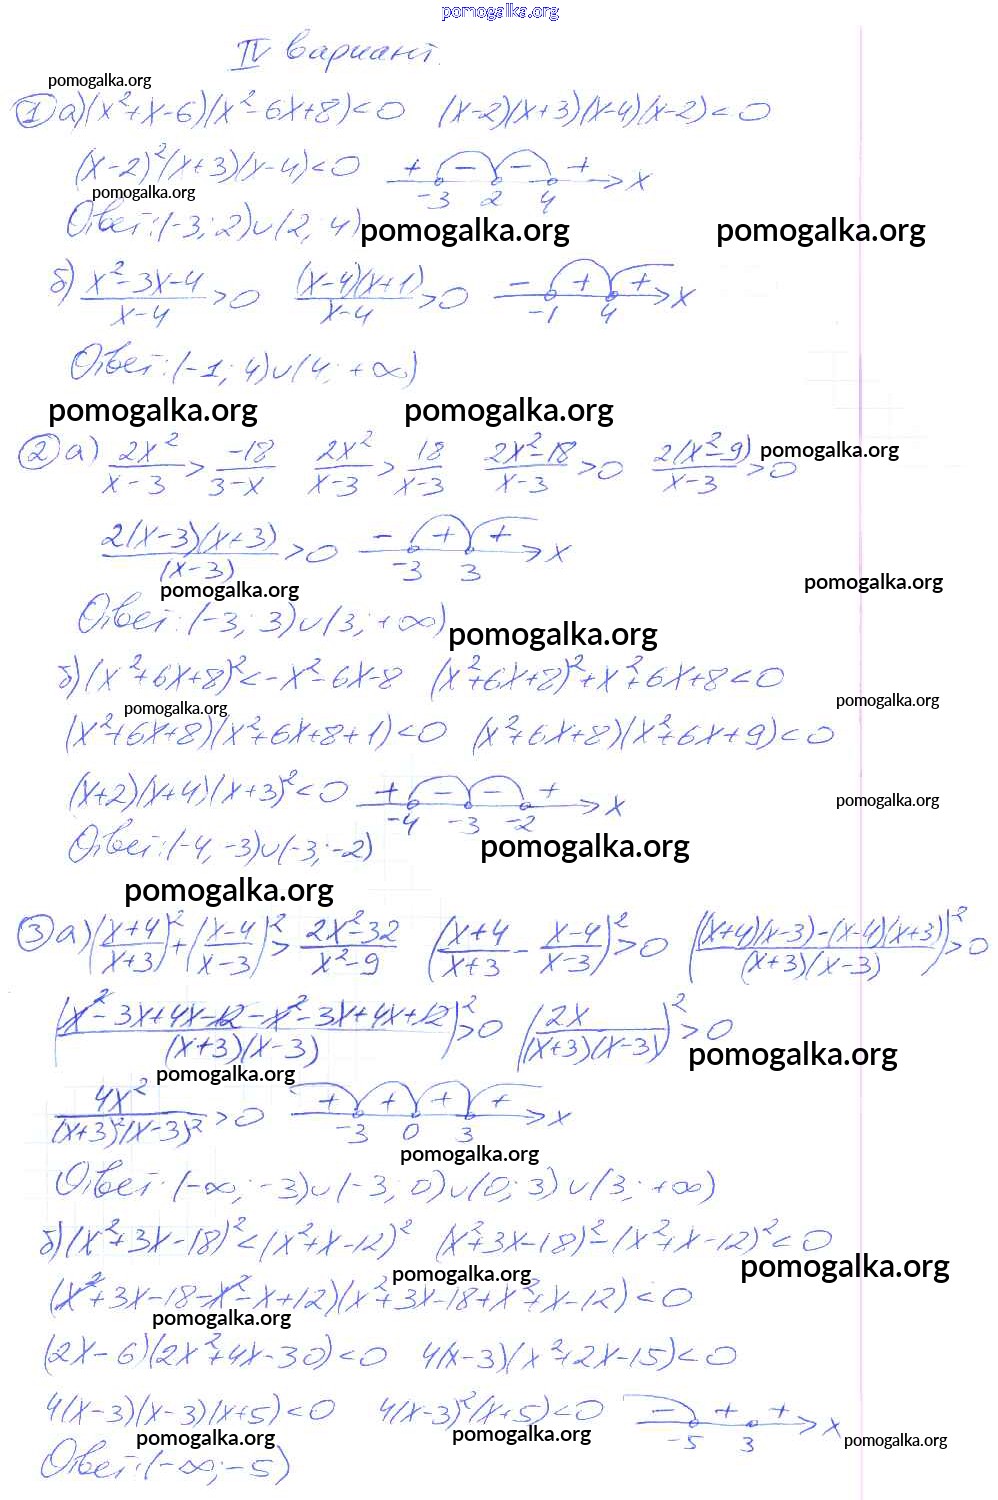 pomogalka.org
IV вариант.
pomogalka.org
① а) (x²+x-6)(x²-6x+8)<0 (x-2)(x+3)(x-4)(x-2)<0
(x-2)²(x+3)(x-4)<0 + - - + -3 2 4 x
pomogalka.org
Ответ: (-3; 2)∪(2; 4) pomogalka.org pomogalka.org
б) (x²-3x-4)/(x-4)>0 ((x-4)(x+1))/(x-4)>0 - + + -1 4 x
Ответ: (-1; 4)∪(4; +∞)
pomogalka.org pomogalka.org
② а) 2x²/(x-3)>-18/(3-x) 2x²/(x-3)>18/(x-3) (2x²-18)/(x-3)>0 2(x²-9)/(x-3)>0 pomogalka.org
2(x-3)(x+3)/(x-3)>0 - + + -3 3 x
pomogalka.org pomogalka.org
Ответ: (-3; 3)∪(3; +∞) pomogalka.org
б) (x²+6x+8)²<-x²-6x-8 (x²+6x+8)²+x²+6x+8<0
pomogalka.org pomogalka.org
(x²+6x+8)(x²+6x+8+1)<0 (x²+6x+8)(x²+6x+9)<0
(x+2)(x+4)(x+3)²<0 + - - + -4 -3 -2 x pomogalka.org
Ответ: (-4; -3)∪(-3; -2) pomogalka.org
pomogalka.org
③ а) ((x+4)/(x+3))²+((x-4)/(x-3))²>(2x²-32)/(x²-9) ((x+4)/(x+3)-(x-4)/(x-3))²>0 (((x+4)(x-3)-(x-4)(x+3))/((x+3)(x-3)))²>0
((x²-3x+4x-12-x²-3x+4x+12)/((x+3)(x-3)))²>0 (2x/((x+3)(x-3)))²>0
pomogalka.org pomogalka.org
4x²/((x+3)²(x-3)²)>0 + + + + -3 0 3 x
pomogalka.org
Ответ: (-∞; -3)∪(-3; 0)∪(0; 3)∪(3; +∞)
б) (x²+3x-18)²<(x²+x-12)² (x²+3x-18)²-(x²+x-12)²<0
pomogalka.org pomogalka.org
(x²+3x-18-x²-x+12)(x²+3x-18+x²+x-12)<0
pomogalka.org
(2x-6)(2x²+4x-30)<0 4(x-3)(x²+2x-15)<0
4(x-3)(x-3)(x+5)<0 4(x-3)²(x+5)<0 - + + -5 3 x
pomogalka.org pomogalka.org pomogalka.org
Ответ: (-∞; -5)